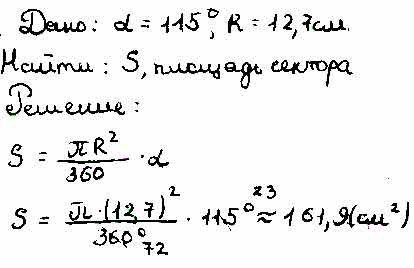 Дано: α = 115°, R = 12,7см.
Найти: S, площадь сектора
Решение:
S = πR²/360 · α
S = π·(12,7)²/360° 72 · 115° 23 ≈ 161,9(см²)